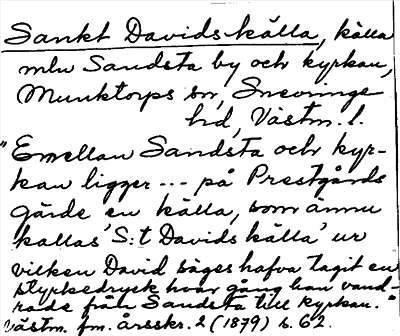 Sankt Davids källa, källa
mlu Sandsta by och kyrkan,
Munktorps sn, Snevringe
hd, Västm. l.
"Emellan Sandsta och kyr-
kan ligger --- på Prestgårds
gärde en källa, som ännu
kallas 'S:t Davids källa' ur
vilken David säges hafva tagit en
styrkedryck hvar gång han vand-
rade från Sandsta till kyrkan."
Västm. fm. årsskr. 2 (1879) s. 62.